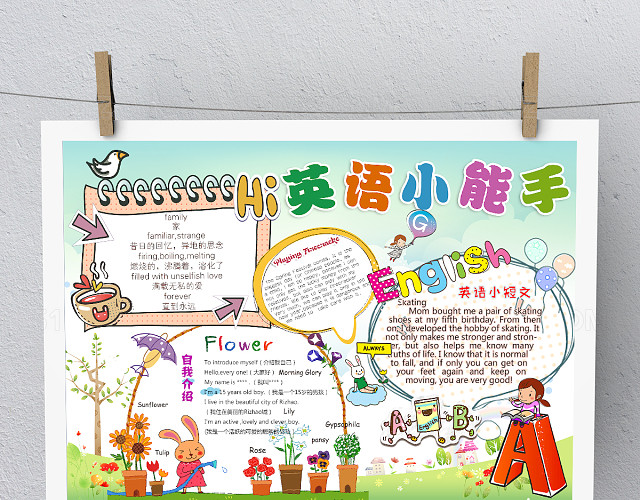 Hi英语小能手
family
家
familiar,strange
昔日的回忆，异地的思念
firing,boiling,melting
燃烧的，沸腾着，溶化了
filled with unselfish love
满载无私的爱
forever
直到永远
Playing Firecracker
English
英语小短文
Skating
Mom bought me a pair of skating
shoes at my fifth birthday. From then
on,I developed the hobby of skating. It
not only makes me stronger and stron-
ger, but also helps me know many
truths of life. I know that it is normal
to fall, and if only you can get to
your feet again and keep on
moving, you are very good!
ALWAYS
Flower
自我介绍
To introduce myself (介绍我自己)
Hello,every one! (大家好)
My name is ****.
I'm a 15 years old boy.
I live in the beautiful city of Rizhao.
I'm an active ,lovely and clever boy.
Morning Glory
Sunflower
Lily
Gypsophila
Tulip
Rose
pansy
A
English
B
A